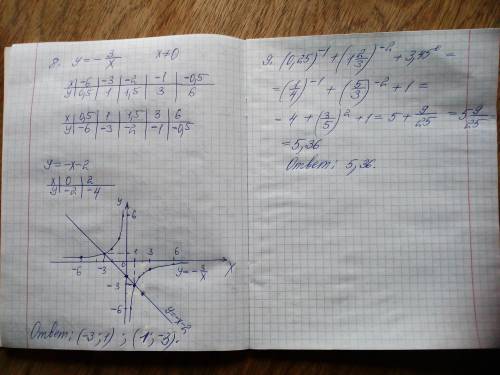 8. y = -3/x    x≠0
x | -6 | -3 | -2 | -1 | -0,5
y | 0,5 | 1 | 1,5 | 3 | 6
x | 0,5 | 1 | 1,5 | 3 | 6
y | -6 | -3 | -2 | -1 | -0,5
y = -x-2
x | 0 | 2
y | -2 | -4
y
6
-6 -3 0 1 3 6 x
y = -3/x
-3
-6
y=-x-2
Ответ: (-3; 1) ; (1; -3).
9. (0,25)⁻¹ + (1 2/3)⁻² + 3,45⁰ =
= (1/4)⁻¹ + (5/3)⁻² + 1 =
= 4 + (3/5)² + 1 = 5 + 9/25 = 5 9/25
= 5,36
Ответ: 5,36.